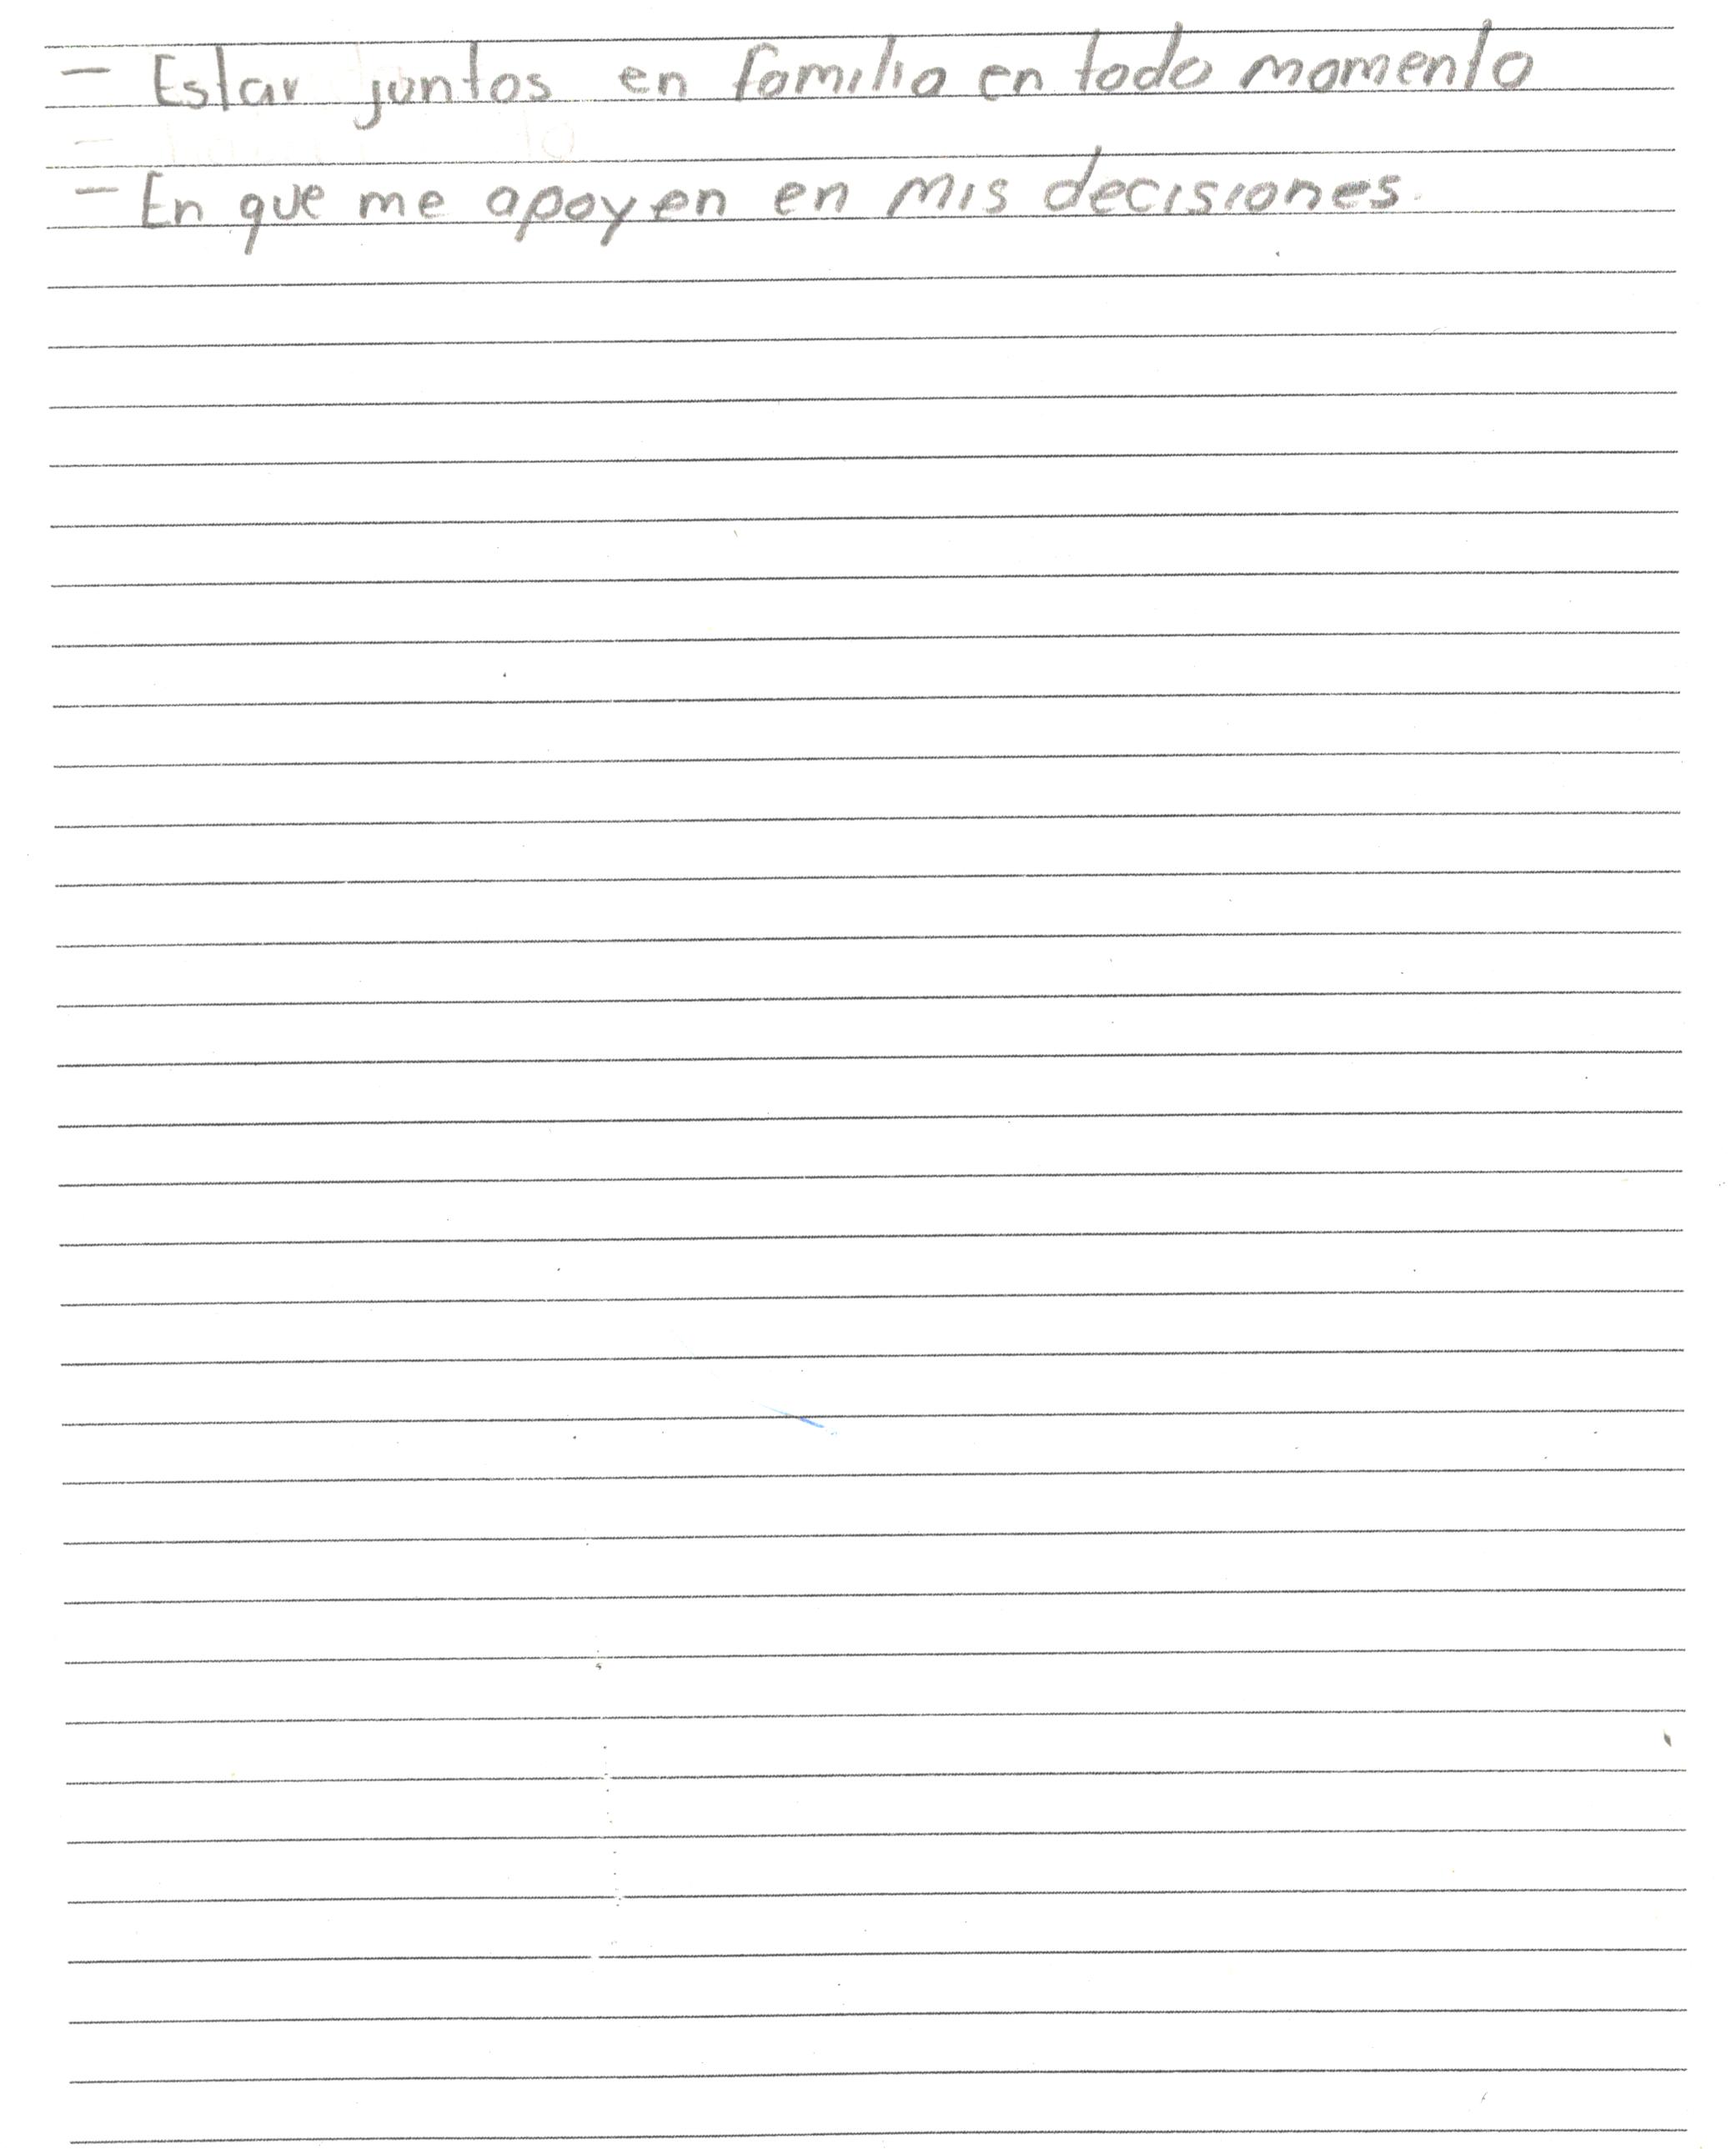 - Estar juntos en familia en todo momento
- En que me apoyen en mis decisiones.